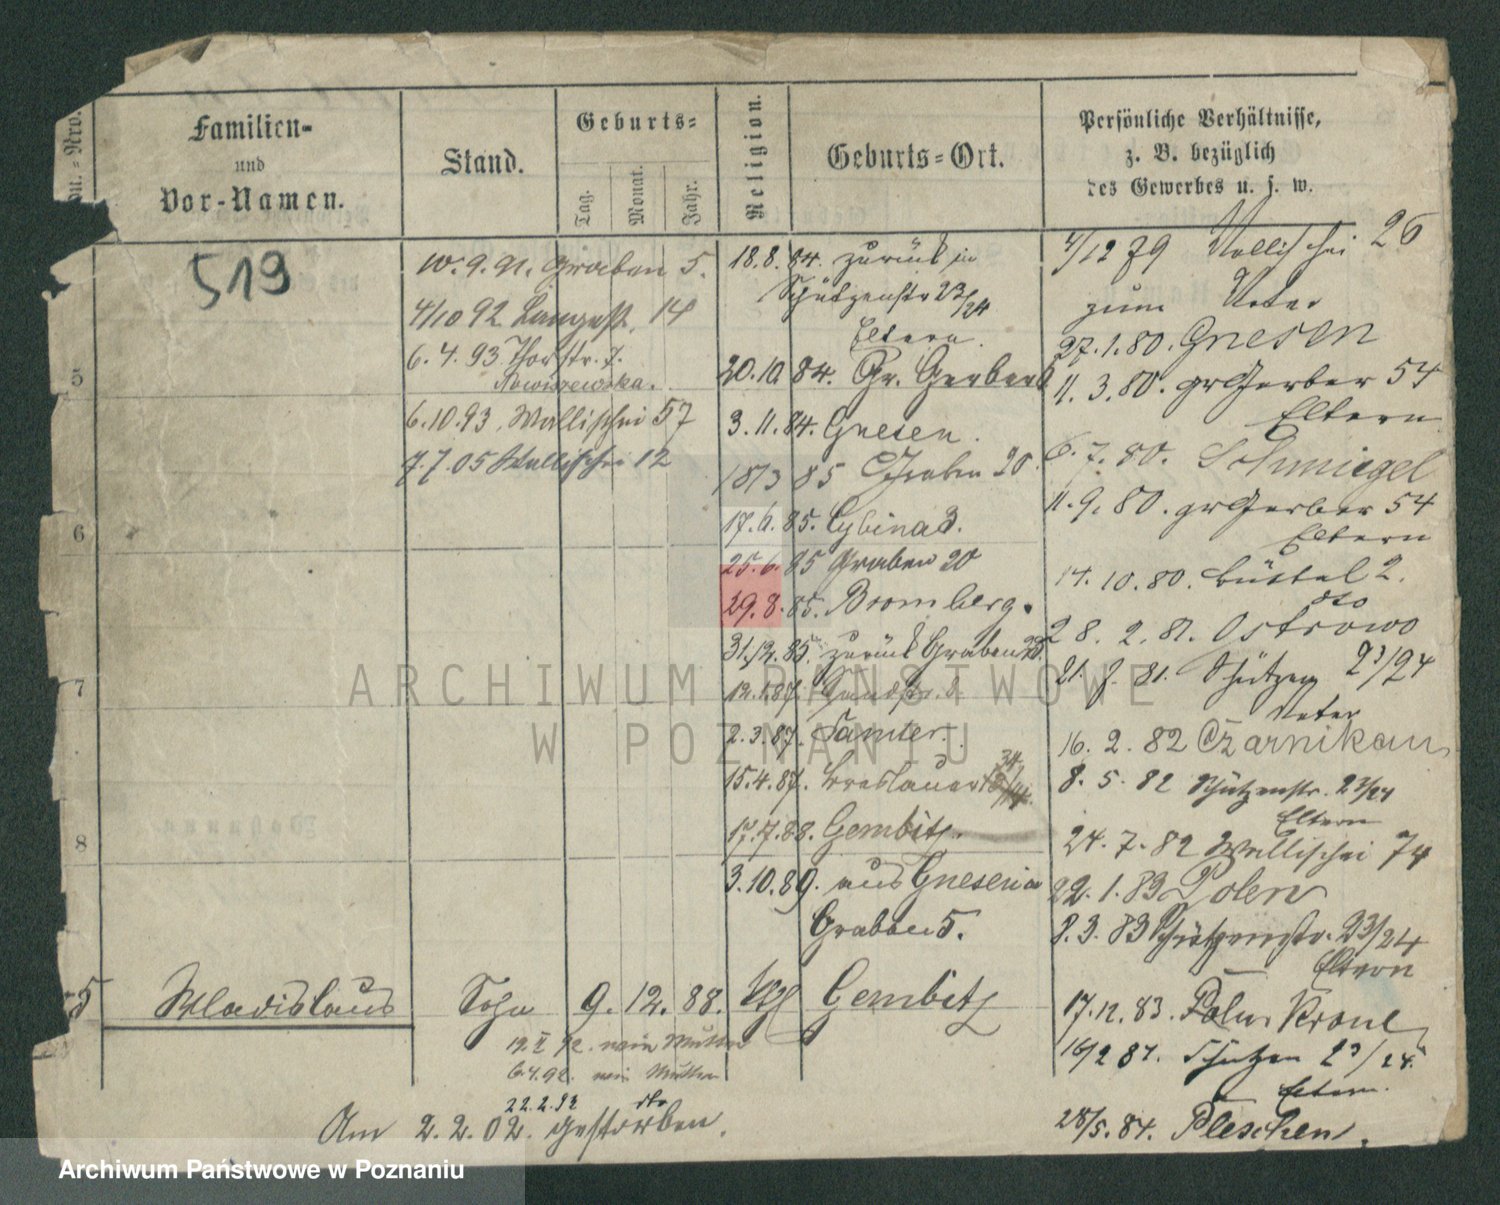 Nro.
Familien-
und
Vor-Namen.
Stand.
Geburts-
Tag.
Monat.
Jahr.
Religion.
Geburts-Ort.
Persönliche Verhältnisse,
z. B. bezüglich
des Gewerbes u. s. w.
519
5
6
7
8
10.9.91. Graben 5.
4/10 92 Langestr. 14
6.4.93 Thorstr. 7.
Nowiszewska.
6.10.93. Wallischei 57
7.7.05 Wallischei 12
18.8.84. zurück in
Schützenstr 23/24
Eltern.
20.10 84. Gr. Gerber
3.11.84. Gnesen.
18/3 85 Graben 20.
17.6.85. Cybina 3.
25.6.85 Graben 20
29.8.85. Bromberg.
31.12.85. zurück Graben 20.
12.1.87.
2.3.87. Samter.
15.4.87. Breslauer
17.7.88. Gembitz.
3.10.89. aus Gnesen
Grabben 5.
4/12 79 Wallischei 26
zum Vater
27.1.80. Gnesen
11.3.80. gr Gerber 54
Eltern
6.7.80. Schmiegel
11.9.80. gr Gerber 54
Eltern
14.10.80. Büttel 2.
dto
28.2.81. Ostrowo
21.7.81. Schützen 23/24
Vater
16.2.82 Czarnikau
8.5.82 Schützenstr. 23/24
Eltern
24.7.82 Wallischei 74
22.1.83 Polen
8.3.83 Schützenstr. 23/24
Eltern
17.12.83. Poln. Krone
16/2 84. Schützen 23/24
Eltern.
28/5.84. Pleschen.
5 Wladislaus Sohn 9.12.88. Gembitz
19. II 92. mein Mutter
6.4.92. mein Mutter
22.2.92 dto
Am 2.2.02. gestorben.
ARCHIWUM PAŃSTWOWE
W POZNANIU
Archiwum Państwowe w Poznaniu